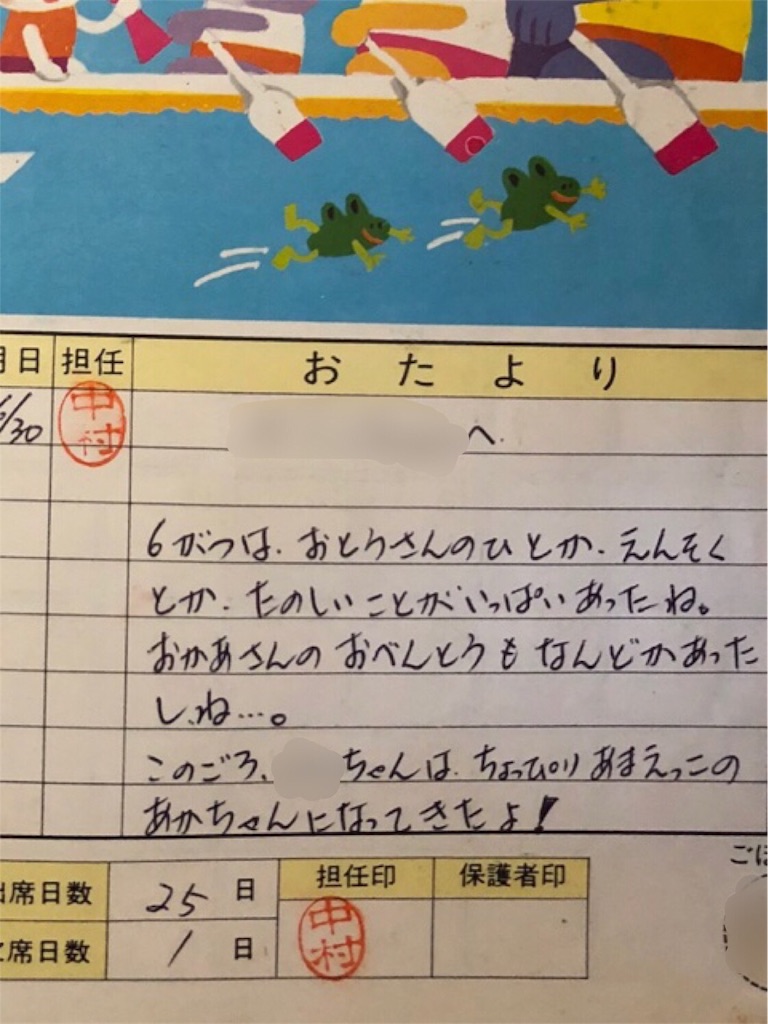 月日 担任 おたより
6/30 中村 へ
6がつは、おとうさんのひとか、えんそく
とか、たのしいことがいっぱいあったね。
おかあさんのおべんとうもなんどかあった
しね…。
このごろ、ちゃんは、ちょっぴりあまえっこの
あかちゃんになってきたよ!
ごほ
出席日数 25日 担任印 保護者印
欠席日数 1日 中村